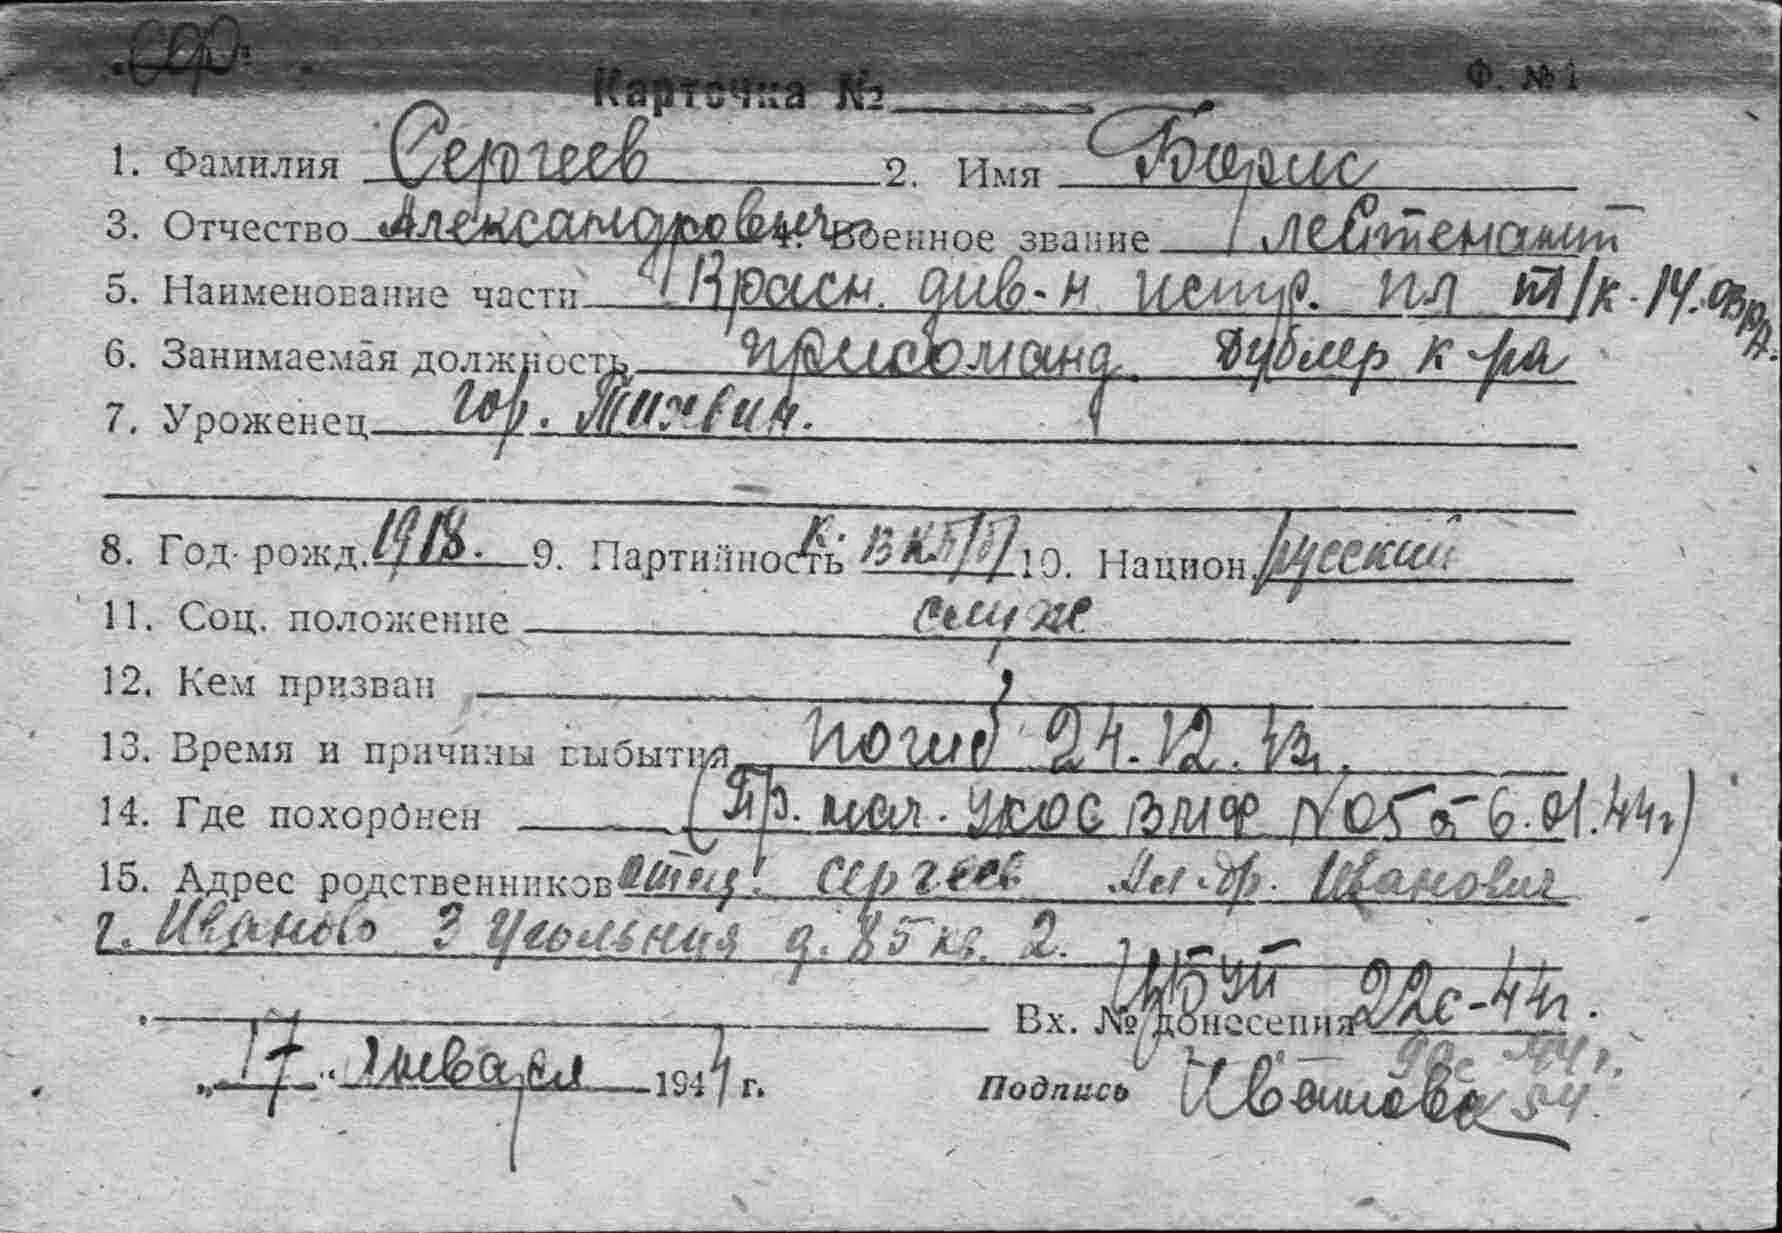 Сер.
Карточка № Ф. №1
1. Фамилия Сергеев 2. Имя Борис
3. Отчество Александрович 4. Военное звание лейтенант
5. Наименование части Красн. див-н истр. пл т/к-14. ОВРА.
6. Занимаемая должность прикоманд. Дублер к-ра
7. Уроженец гор. Тихвин.
8. Год рожд. 1918. 9. Партийность к. ВКП/б/ 10. Национ. русский
11. Соц. положение служ
12. Кем призван
13. Время и причины выбытия погиб 24.12.43г.
14. Где похоронен (Пр. нач. УКОС ВМФ №05 от 6.01.44г)
15. Адрес родственников отец: Сергеев Ал-др. Иванович
г. Иваново 3 Угольная д. 85 кв. 2.
Вх. № донесения 22с-44г.
„17“ января 1944 г. Подпись